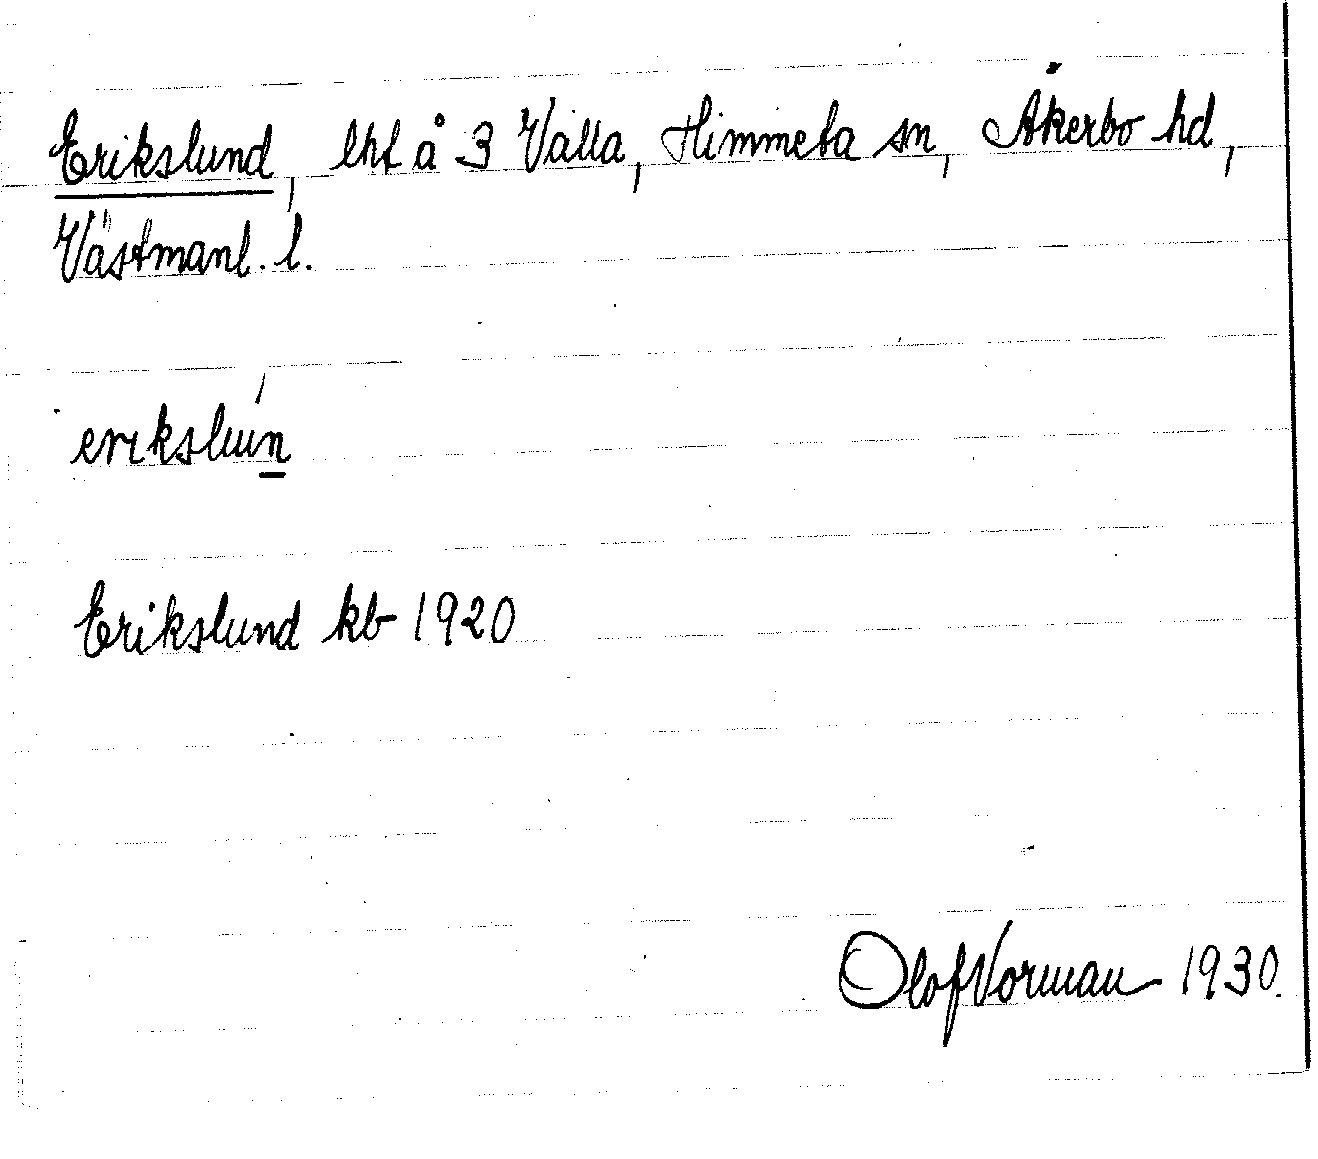 Erikslund, lht å 3 Valla, Himmeta sn, Åkerbo hd,
Västmanl. l.
erikslun
Erikslund kb 1920
Olof Vorman 1930.